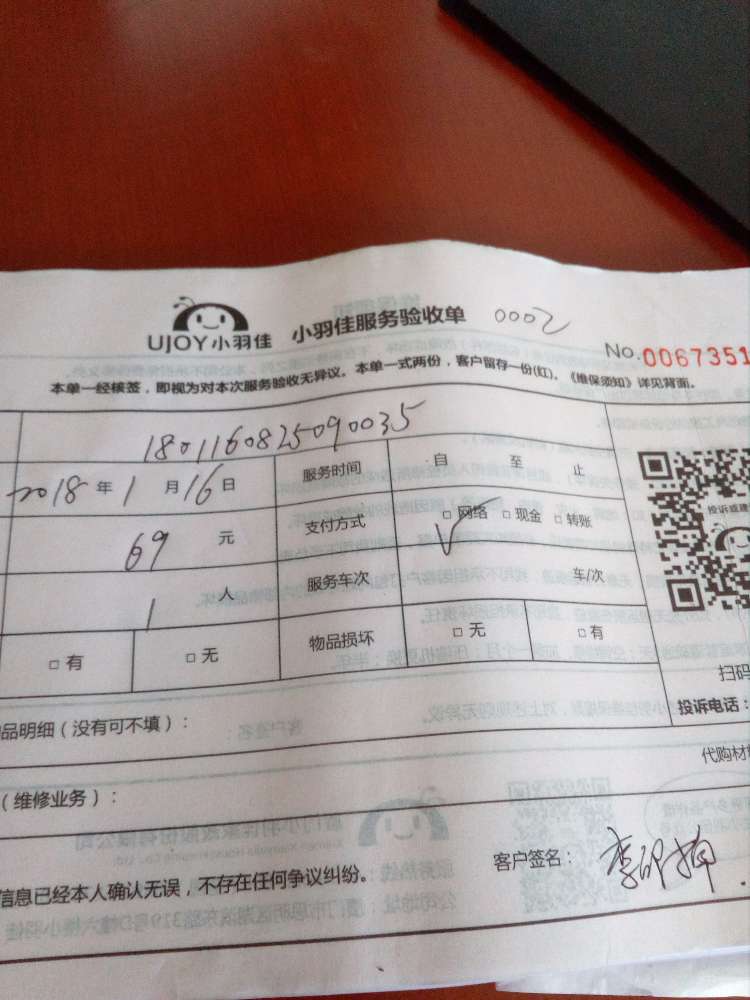 UJOY小羽佳 小羽佳服务验收单 0002
No.0067351
本单一经核签，即视为对本次服务验收无异议。本单一式两份，客户留存一份(红)。《维保须知》详见背面。
1801160825090035
2018年1月16日 服务时间 自 至 止
69元 支付方式 □网络 □现金 □转账
1人 服务车次 车/次
□有 □无 物品损坏 □无 □有
投诉或建
扫码
投诉电话：
品明细（没有可不填）：
代购材
（维修业务）：
信息已经本人确认无误，不存在任何争议纠纷。 客户签名：